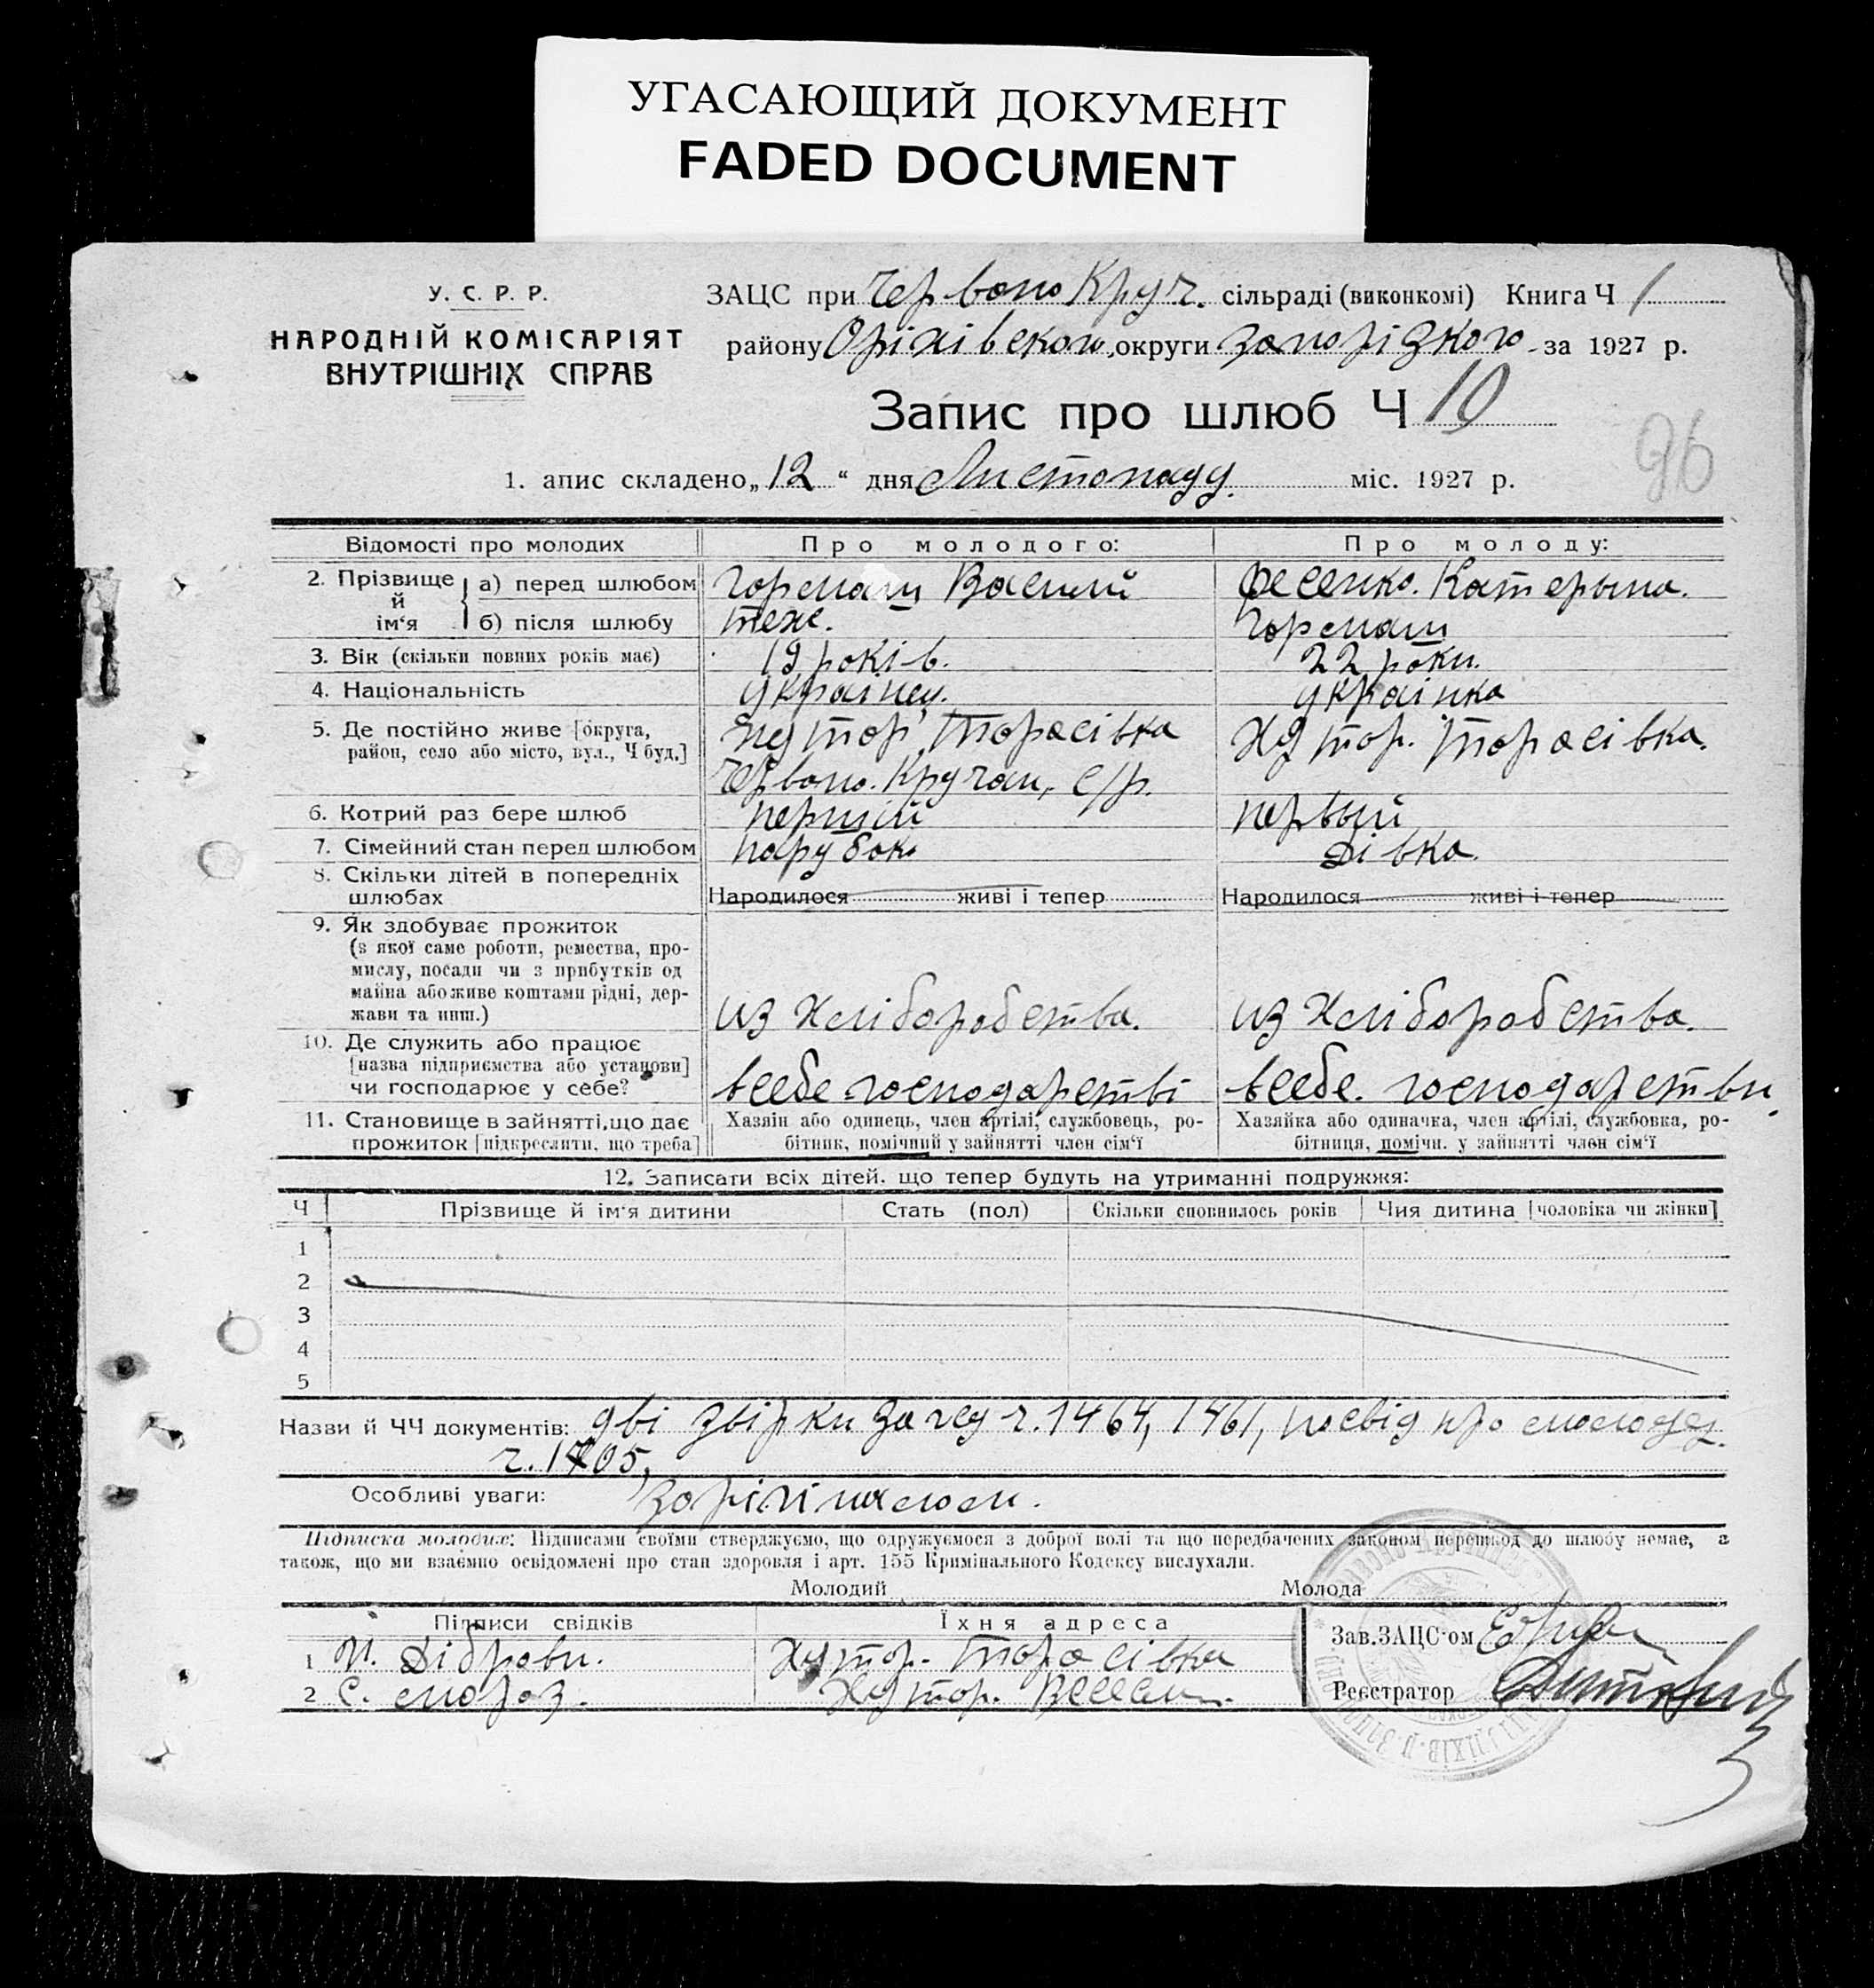 УГАСАЮЩИЙ ДОКУМЕНТ
FADED DOCUMENT
У. С. Р. Р.
НАРОДНІЙ КОМІСАРІЯТ
ВНУТРІШНІХ СПРАВ
ЗАЦС при Червоно Круч. сільраді (виконкомі) Книга Ч 1
району Оріхівского, округи Запорізкого за 1927 р.
Запис про шлюб Ч 10
96
1. апис складено „12“ дня Листопаду. міс. 1927 р.
Відомості про молодих Про молодого: Про молоду:
2. Прізвище й ім‘я а) перед шлюбом Горпаш Василий Фесенко. Катерына.
б) після шлюбу теже. Горпаш
3. Вік (скільки повних років має) 19 років. 22 роки.
4. Національність українец. українка
5. Де постійно живе [округа, район, село або місто, вул., Ч буд.] Хутор Торасівка Хутор. Торасівка.
Червоно. Кручан, с/р.
6. Котрий раз бере шлюб перший первый
7. Сімейний стан перед шлюбом парубок. дівка.
8. Скільки дітей в попередніх шлюбах Народилося живі і тепер Народилося живі і тепер
9. Як здобуває прожиток
(з якої саме роботи, ремества, про-
мислу, посади чи з прибутків од
майна або живе коштами рідні, дер-
жави та инш.) из хліборобства. из хліборобства.
10. Де служить або працює
[назва підприємства або установи]
чи господарює у себе? всебе господарстві всебе. господарстви.
11. Становище в зайнятті, що дає прожиток [підкреслити, що треба] Хазяїн або одинець, член артілі, службовець, ро- Хазяйка або одиначка, член артілі, службовка, ро-
бітник, помічний у зайнятті член сім‘ї бітниця, помічн. у зайнятті член сім‘ї
12. Записати всіх дітей. що тепер будуть на утриманні подружжя:
Ч Прізвище й ім‘я дитини Стать (пол) Скільки сповнилось років Чия дитина [чоловіка чи жінки]
1
2
3
4
5
Назви й ЧЧ документів: дві звірки за ч. 1464, 1461, посвід про
ч. 1705,
Особливі уваги:
Підписка молодих: Підписами своїми стверджуємо, що одружуємося з доброї волі та що передбачених законом перешкод до шлюбу немає, а
також, що ми взаємно освідомлені про стан здоровля і арт. 155 Кримінального Кодексу вислухали.
Молодий Молода
Підписи свідків Їхня адреса
Зав. ЗАЦС‘ом
1 И. Діброви. Хутор. Торасівка
2 С. мороз. Хутор. Весели.
Реєстратор